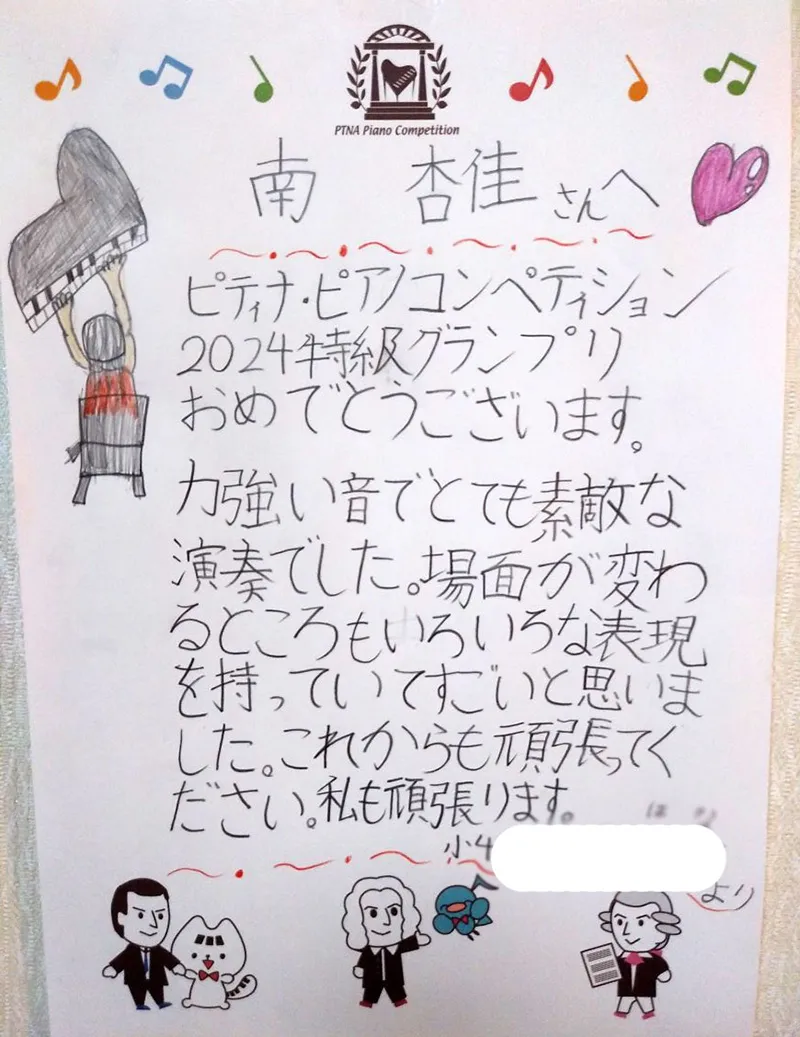 PTNA Piano Competition
南 杏佳さんへ
ピティナ・ピアノコンペティション
2024特級グランプリ
おめでとうございます。
力強い音でとても素敵な
演奏でした。場面が変わ
るところもいろいろな表現
を持っていてすごいと思いま
した。これからも頑張ってく
ださい。私も頑張ります。
小4
より